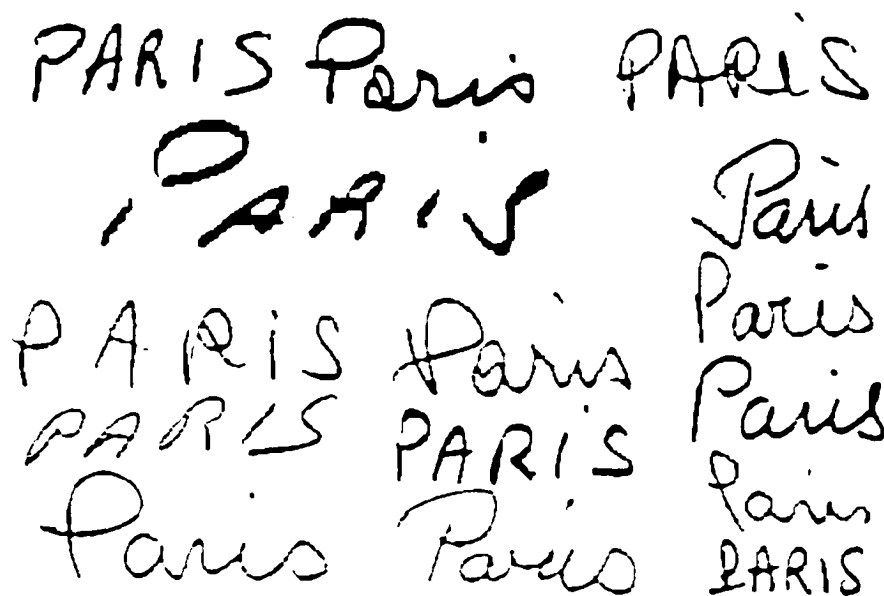 PARIS Paris PARiS
PARiS Paris
Paris
PARiS Paris
Paris
PARIS PARiS
Paris
Paris Paris
PARIS